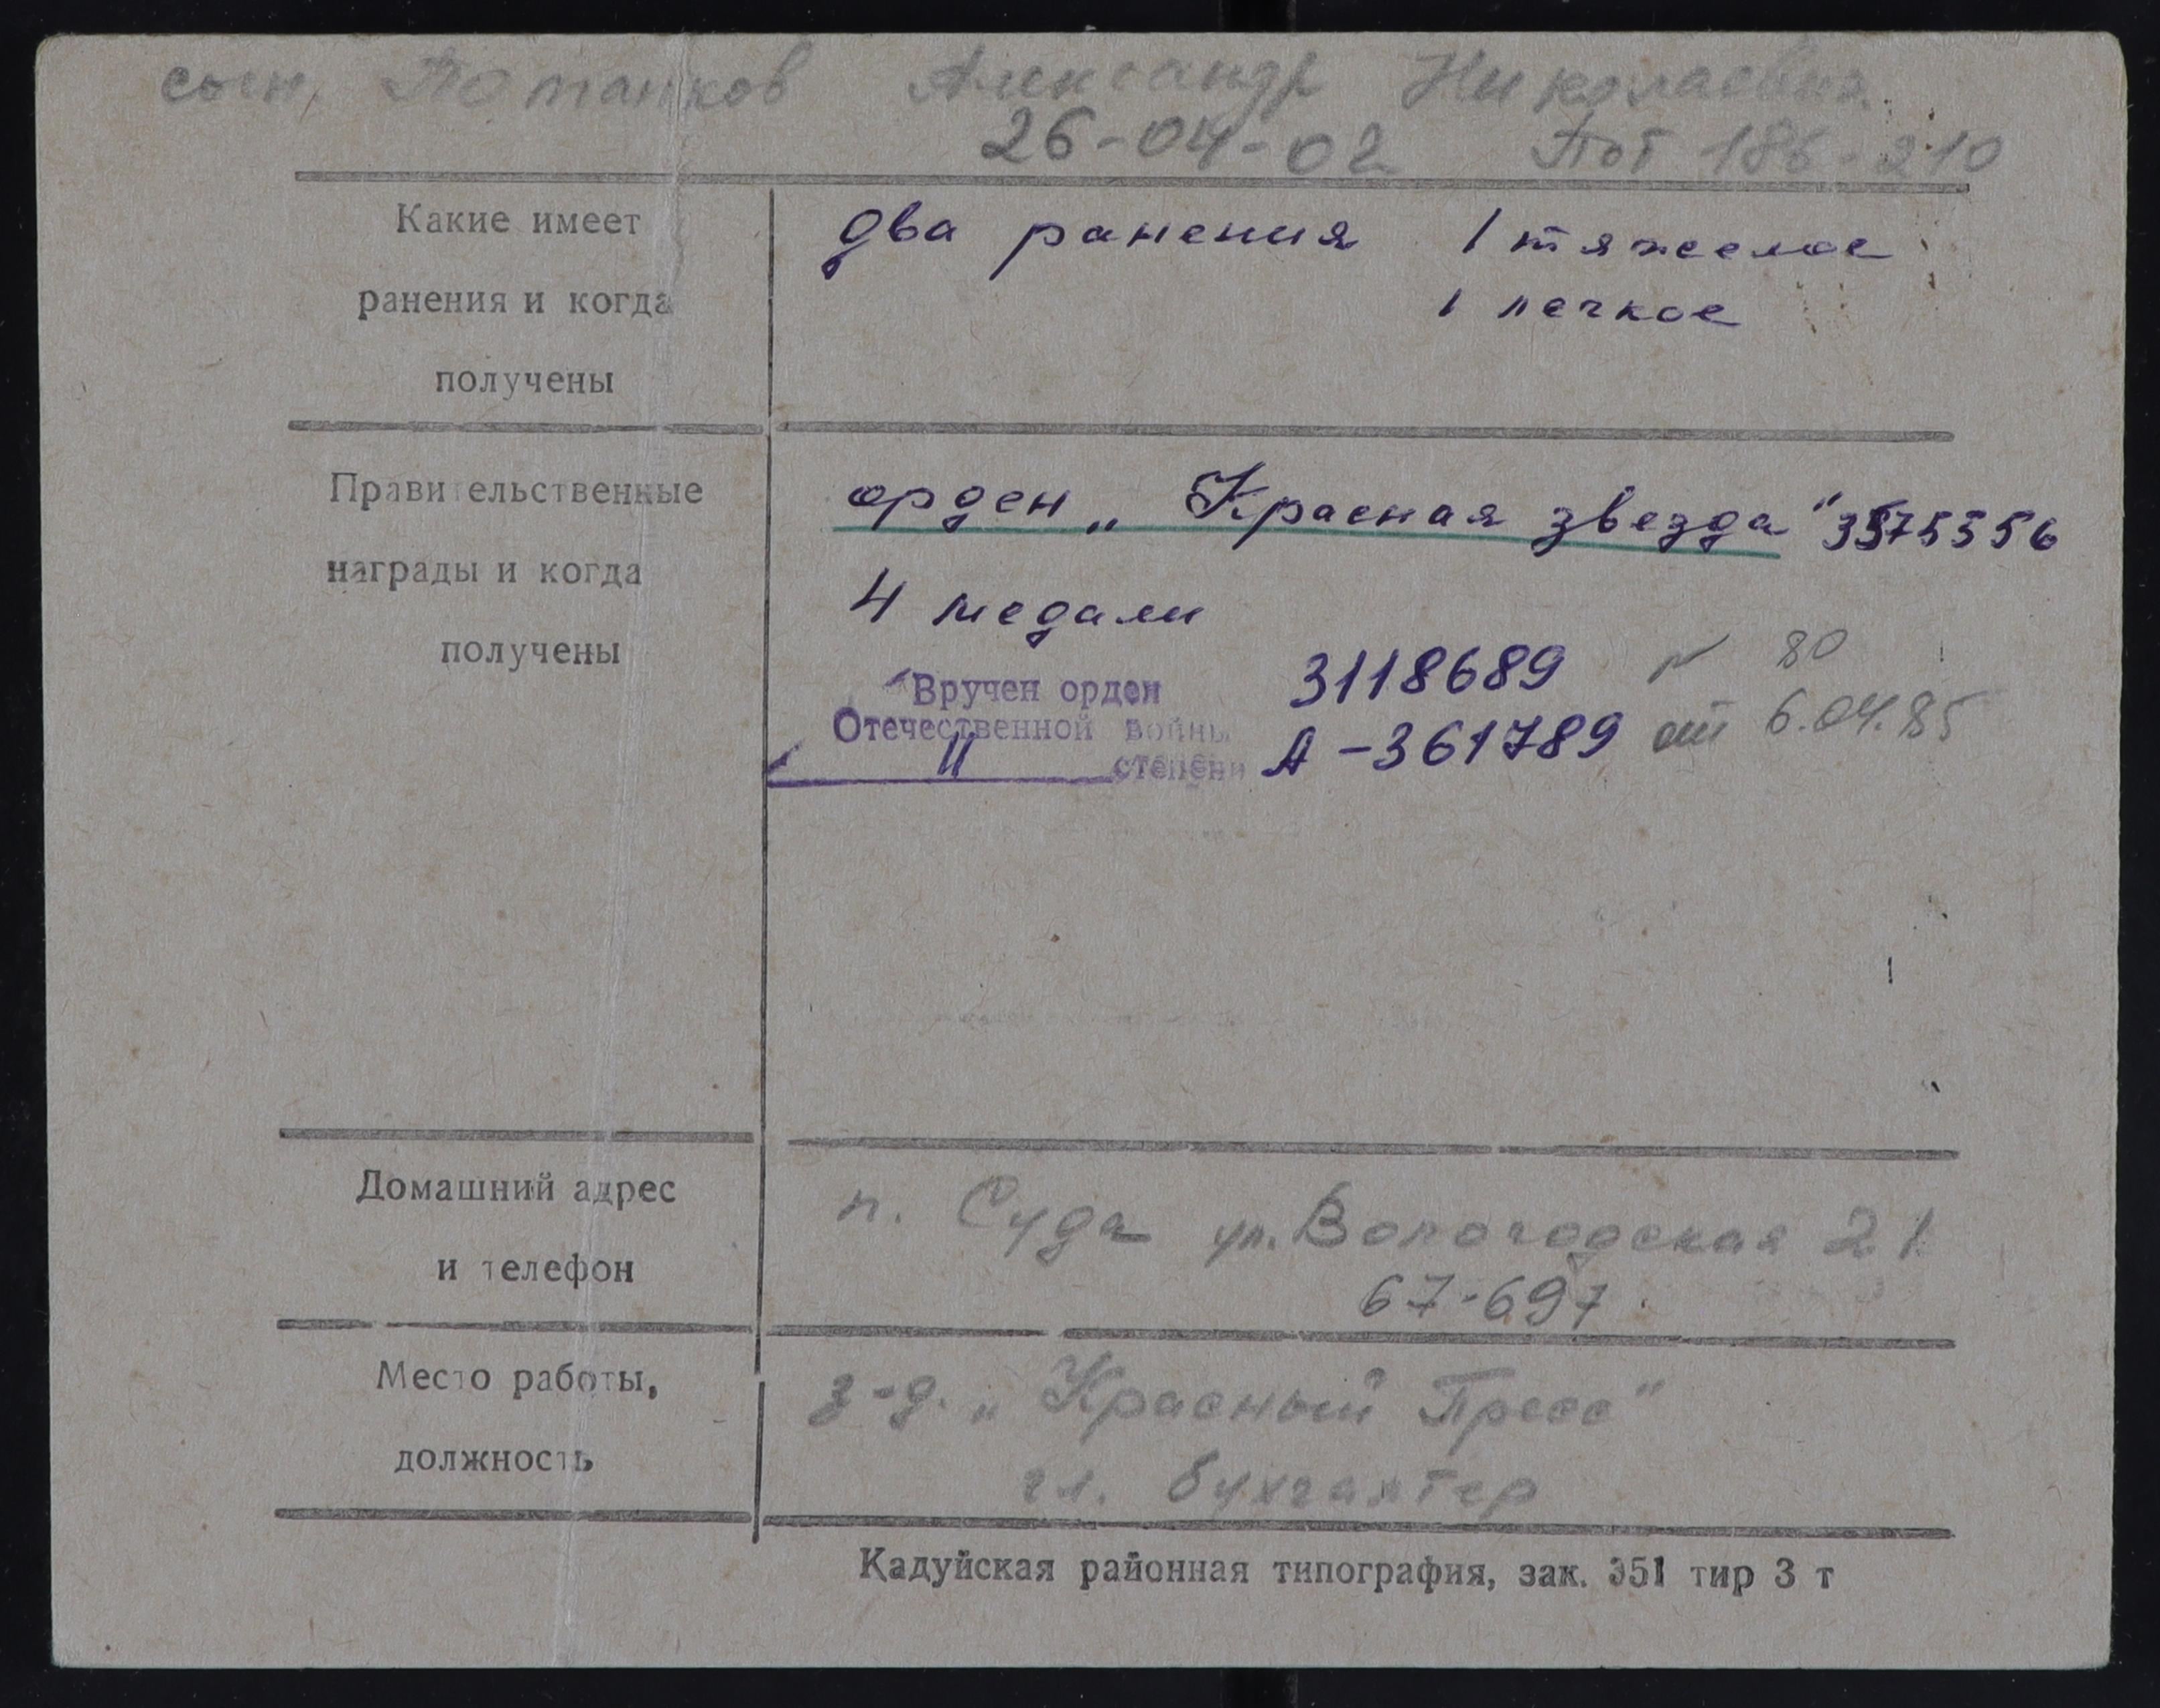 сын, Потанков Александр Николаевич.
26-04-02 Пот 186-210
Какие имеет
ранения и когда
получены
два ранения 1 тяжелое
1 легкое
Правительственные
награды и когда
получены
орден „Красная звезда" 3575556
4 медали
Вручен орден
Отечественной войны
II степени
3118689 № 80
А-361789 от 6.04.85
Домашний адрес
и телефон
п. Суда ул. Вологодская 21
67-697
Место работы,
должность
з-д. „Красный Пресс"
гл. бухгалтер
Кадуйская районная типография, зак. 351 тир 3 т